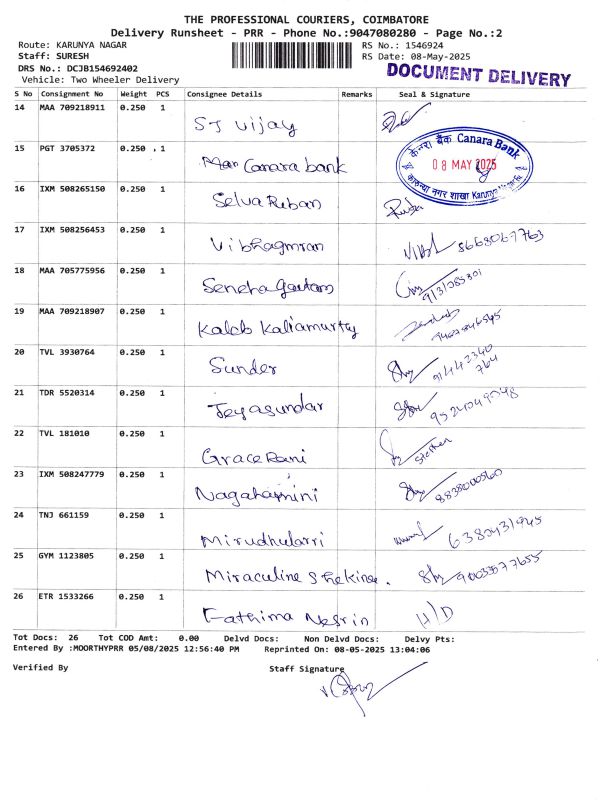 THE PROFESSIONAL COURIERS, COIMBATORE
Delivery Runsheet - PRR - Phone No.:9047080280 - Page No.:2
Route: KARUNYA NAGAR RS No.: 1546924
Staff: SURESH RS Date: 08-May-2025
DRS No.: DCJB154692402
DOCUMENT DELIVERY
Vehicle: Two Wheeler Delivery
S No Consignment No Weight PCS Consignee Details Remarks Seal & Signature
14 MAA 709218911 0.250 1 ST Vijay
15 PGT 3705372 0.250 1 Man Canara bank
केनरा बैंक Canara Bank
08 MAY 2025
कारुण्या नगर शाखा Karunya
16 IXM 508265150 0.250 1 Selva Ruban
17 IXM 508256453 0.250 1 Vibhagmran
18 MAA 705775956 0.250 1 Seneha Gautam
19 MAA 709218907 0.250 1 Kaleb Kaliamurty
20 TVL 3930764 0.250 1 Sunder 91442340
764
21 TDR 5520314 0.250 1 Jeyasundar
22 TVL 181010 0.250 1 Grace Rani Stephen
23 IXM 508247779 0.250 1 Nagahamini 8838000560
24 TNJ 661159 0.250 1 Mirudhularri 6380431945
25 GYM 1123805 0.250 1 Miraculine Shekina. 9003577655
26 ETR 1533266 0.250 1 Fathima Nesrin H/D
Tot Docs: 26 Tot COD Amt: 0.00 Delvd Docs: Non Delvd Docs: Delvy Pts:
Entered By :MOORTHYPRR 05/08/2025 12:56:40 PM Reprinted On: 08-05-2025 13:04:06
Verified By Staff Signature